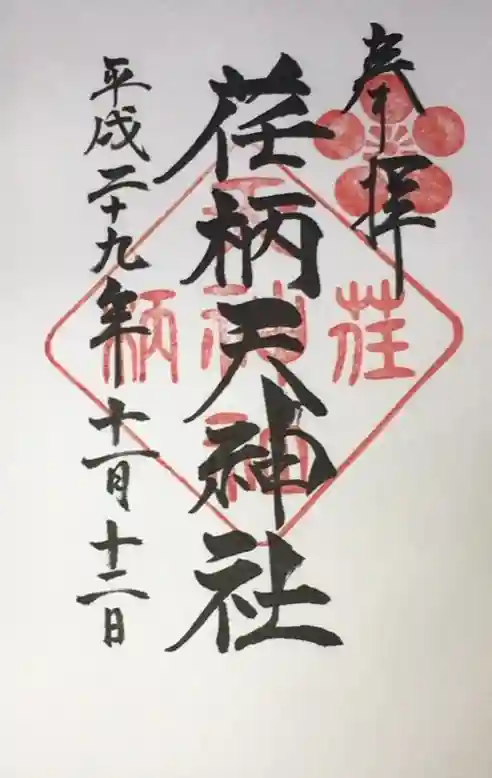 奉拝
荏柄天神社
平成二十九年十一月十二日
荏柄天神社